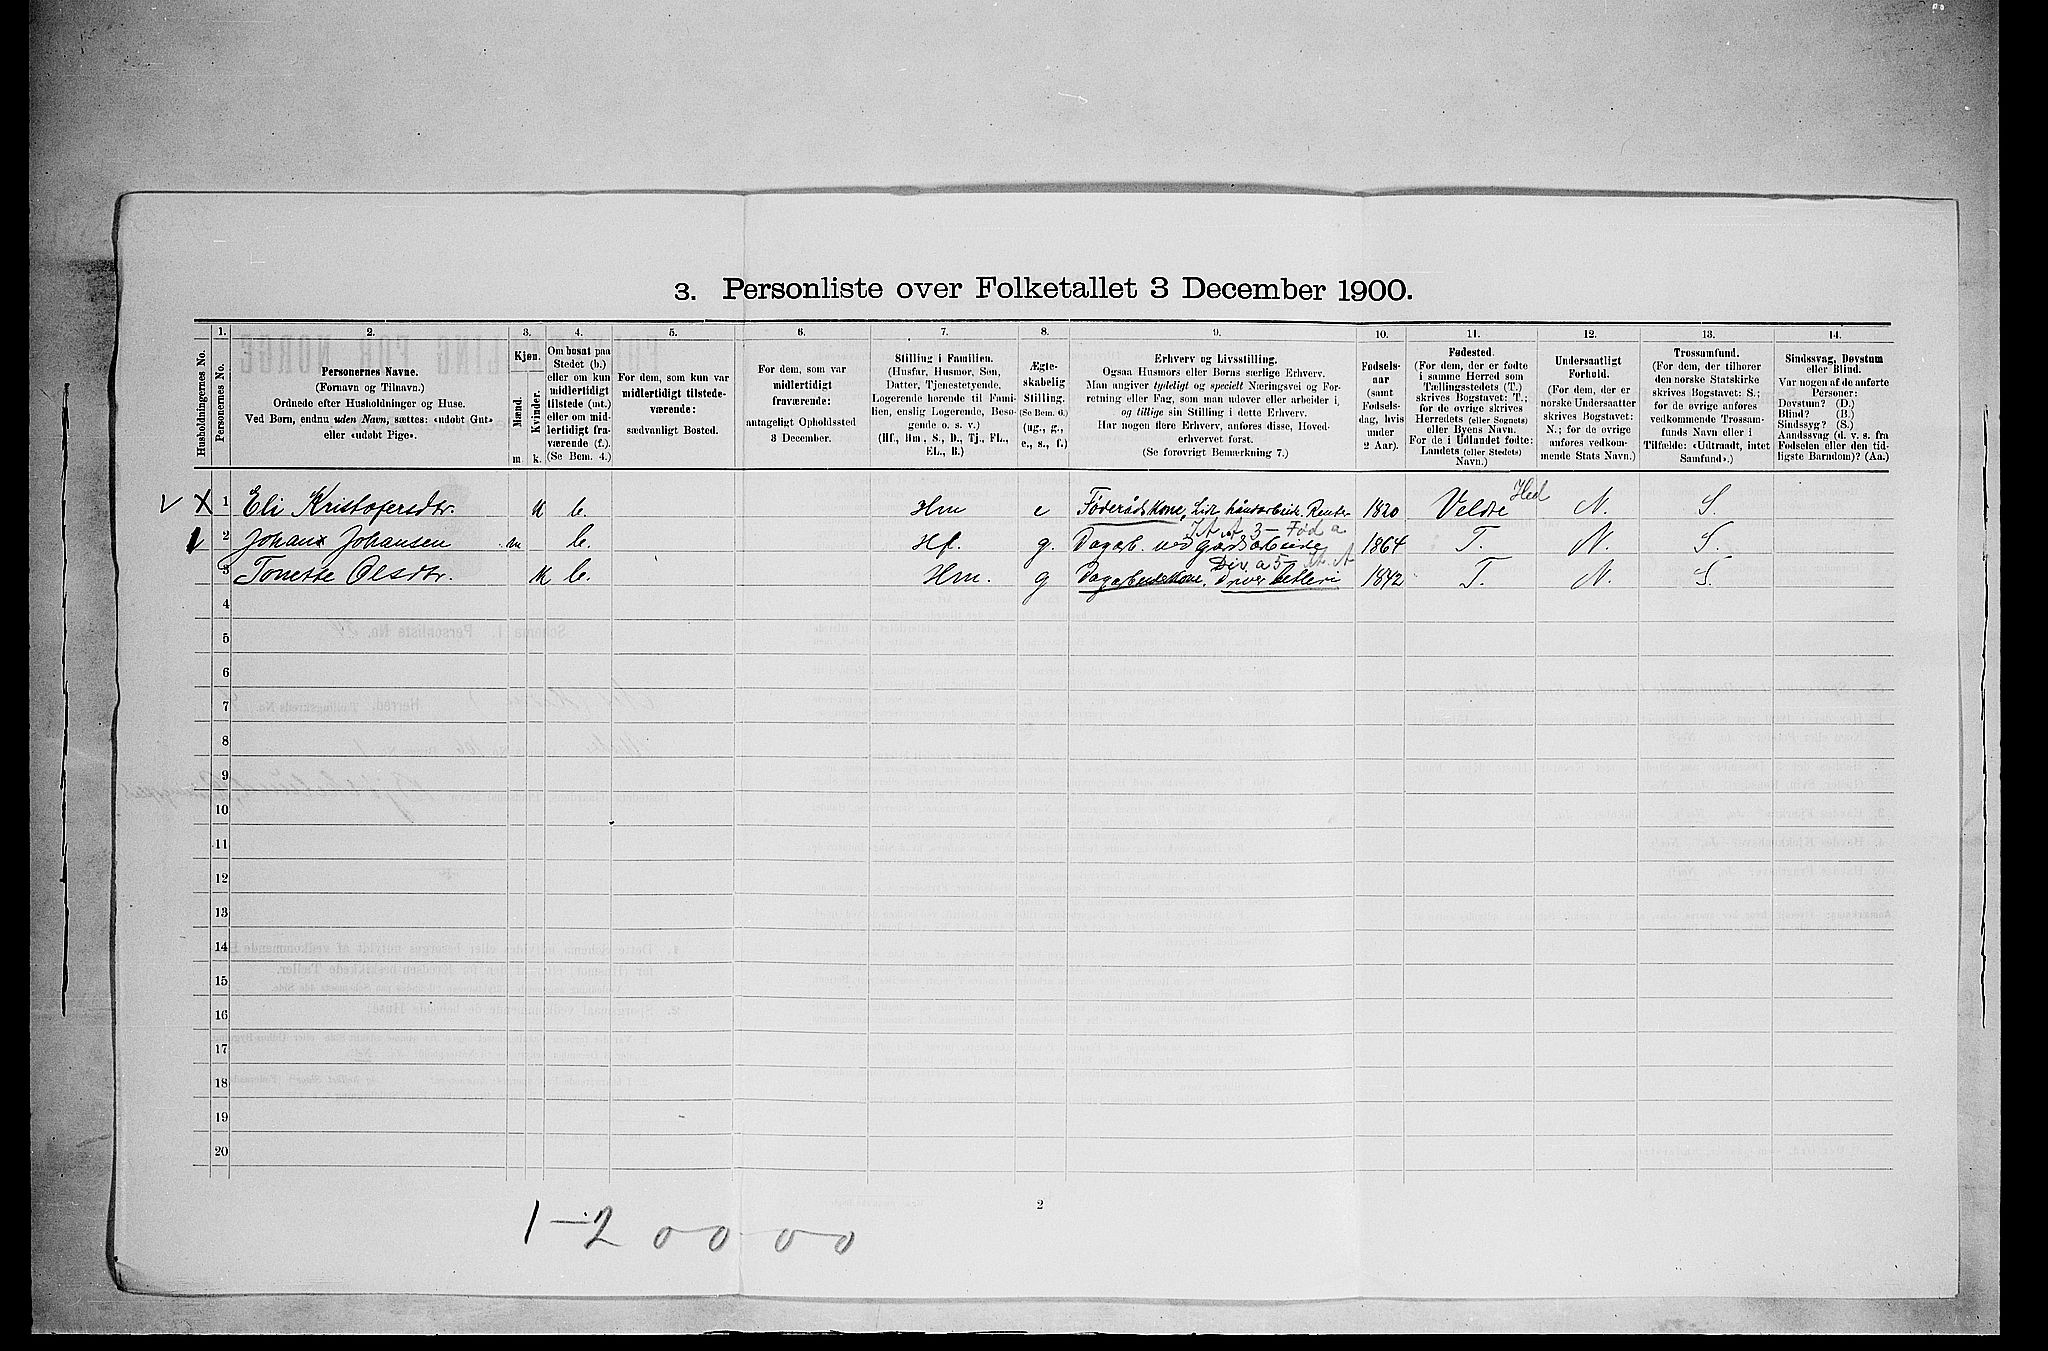 3. Personliste over Folketallet 3 December 1900.
1. 2. 3. 4. 5. 6. 7. 8. 9. 10. 11. 12. 13. 14.
Husholdningernes No.
Personernes No.
Personernes Navne.
(Fornavn og Tilnavn.)
Ordnede efter Husholdninger og Huse.
Ved Børn, endnu uden Navn, sættes: «udøbt Gut»
eller «udøbt Pige».
Kjøn.
Mænd.
Kvinder.
m. k.
Om bosat paa
Stedet (b.)
eller om kun
midlertidigt
tilstede (mt.)
eller om mid-
lertidigt fra-
værende (f.).
(Se Bem. 4.)
For dem, som kun var
midlertidigt tilstede-
værende:
sædvanligt Bosted.
For dem, som var
midlertidigt
fraværende:
antageligt Opholdssted
3 December.
Stilling i Familien.
(Husfar, Husmor, Søn,
Datter, Tjenestetyende,
Logerende hørende til Fami-
lien, enslig Logerende, Besø-
gende o. s. v.)
(Hf., Hm., S., D., Tj., FL.,
EL., B.)
Ægte-
skabelig
Stilling.
(Se Bem. 6.)
(ug., g.,
e., s., f.)
Erhverv og Livsstilling.
Ogsaa Husmors eller Børns særlige Erhverv.
Man angiver tydeligt og specielt Næringsvei og For-
retning eller Fag, som man udøver eller arbeider i,
og tillige sin Stilling i dette Erhverv.
Har nogen flere Erhverv, anføres disse, Hoved-
erhvervet først.
(Se forøvrigt Bemærkning 7.)
Fødsels-
aar
(samt
Fødsels-
dag, hvis
under
2 Aar).
Fødested.
(For dem, der er fødte
i samme Herred som
Tællingsstedets (T.)
skrives Bogstavet: T.;
for de øvrige skrives
Herredets (eller Sognets)
eller Byens Navn.
For de i Udlandet fødte:
Landets (eller Stedets)
Navn.)
Undersaatligt
Forhold.
(For dem, der er
norske Undersaatter
skrives Bogstavet:
N.; for de øvrige
anføres vedkom-
mende Stats Navn.)
Trossamfund.
(For dem, der tilhører
den norske Statskirke
skrives Bogstavet: S.;
for de øvrige anføres
vedkommende Trossam-
funds Navn eller i
Tilfælde: «Udtraadt, intet
Samfund».)
Sindssvag, Døvstum
eller Blind.
Var nogen af de anførte
Personer:
Døvstum? (D.)
Blind? (B.)
Sindssyg? (S.)
Aandssvag (d. v. s. fra
Fødselen eller den tid-
ligste Barndom)? (Aa.)
X 1 Eli Kristofersdtr. k b. Hm e Føderådskone, Lidt håndarbeide. Renter 1820 Veldre Hed N. S.
2 Johan Johansen m b. Hf. g. Dagarb. ved gårdsarbeide 1864 T. N. S.
3 Tonette Olsdtr. k b. Hm. g Dagarbeiderkone, Driver betleri 1842 T. N. S.
4
5
6
7
8
9
10
11
12
13
14
15
16
17
18
19
20
2
1-2 0-0 0-0